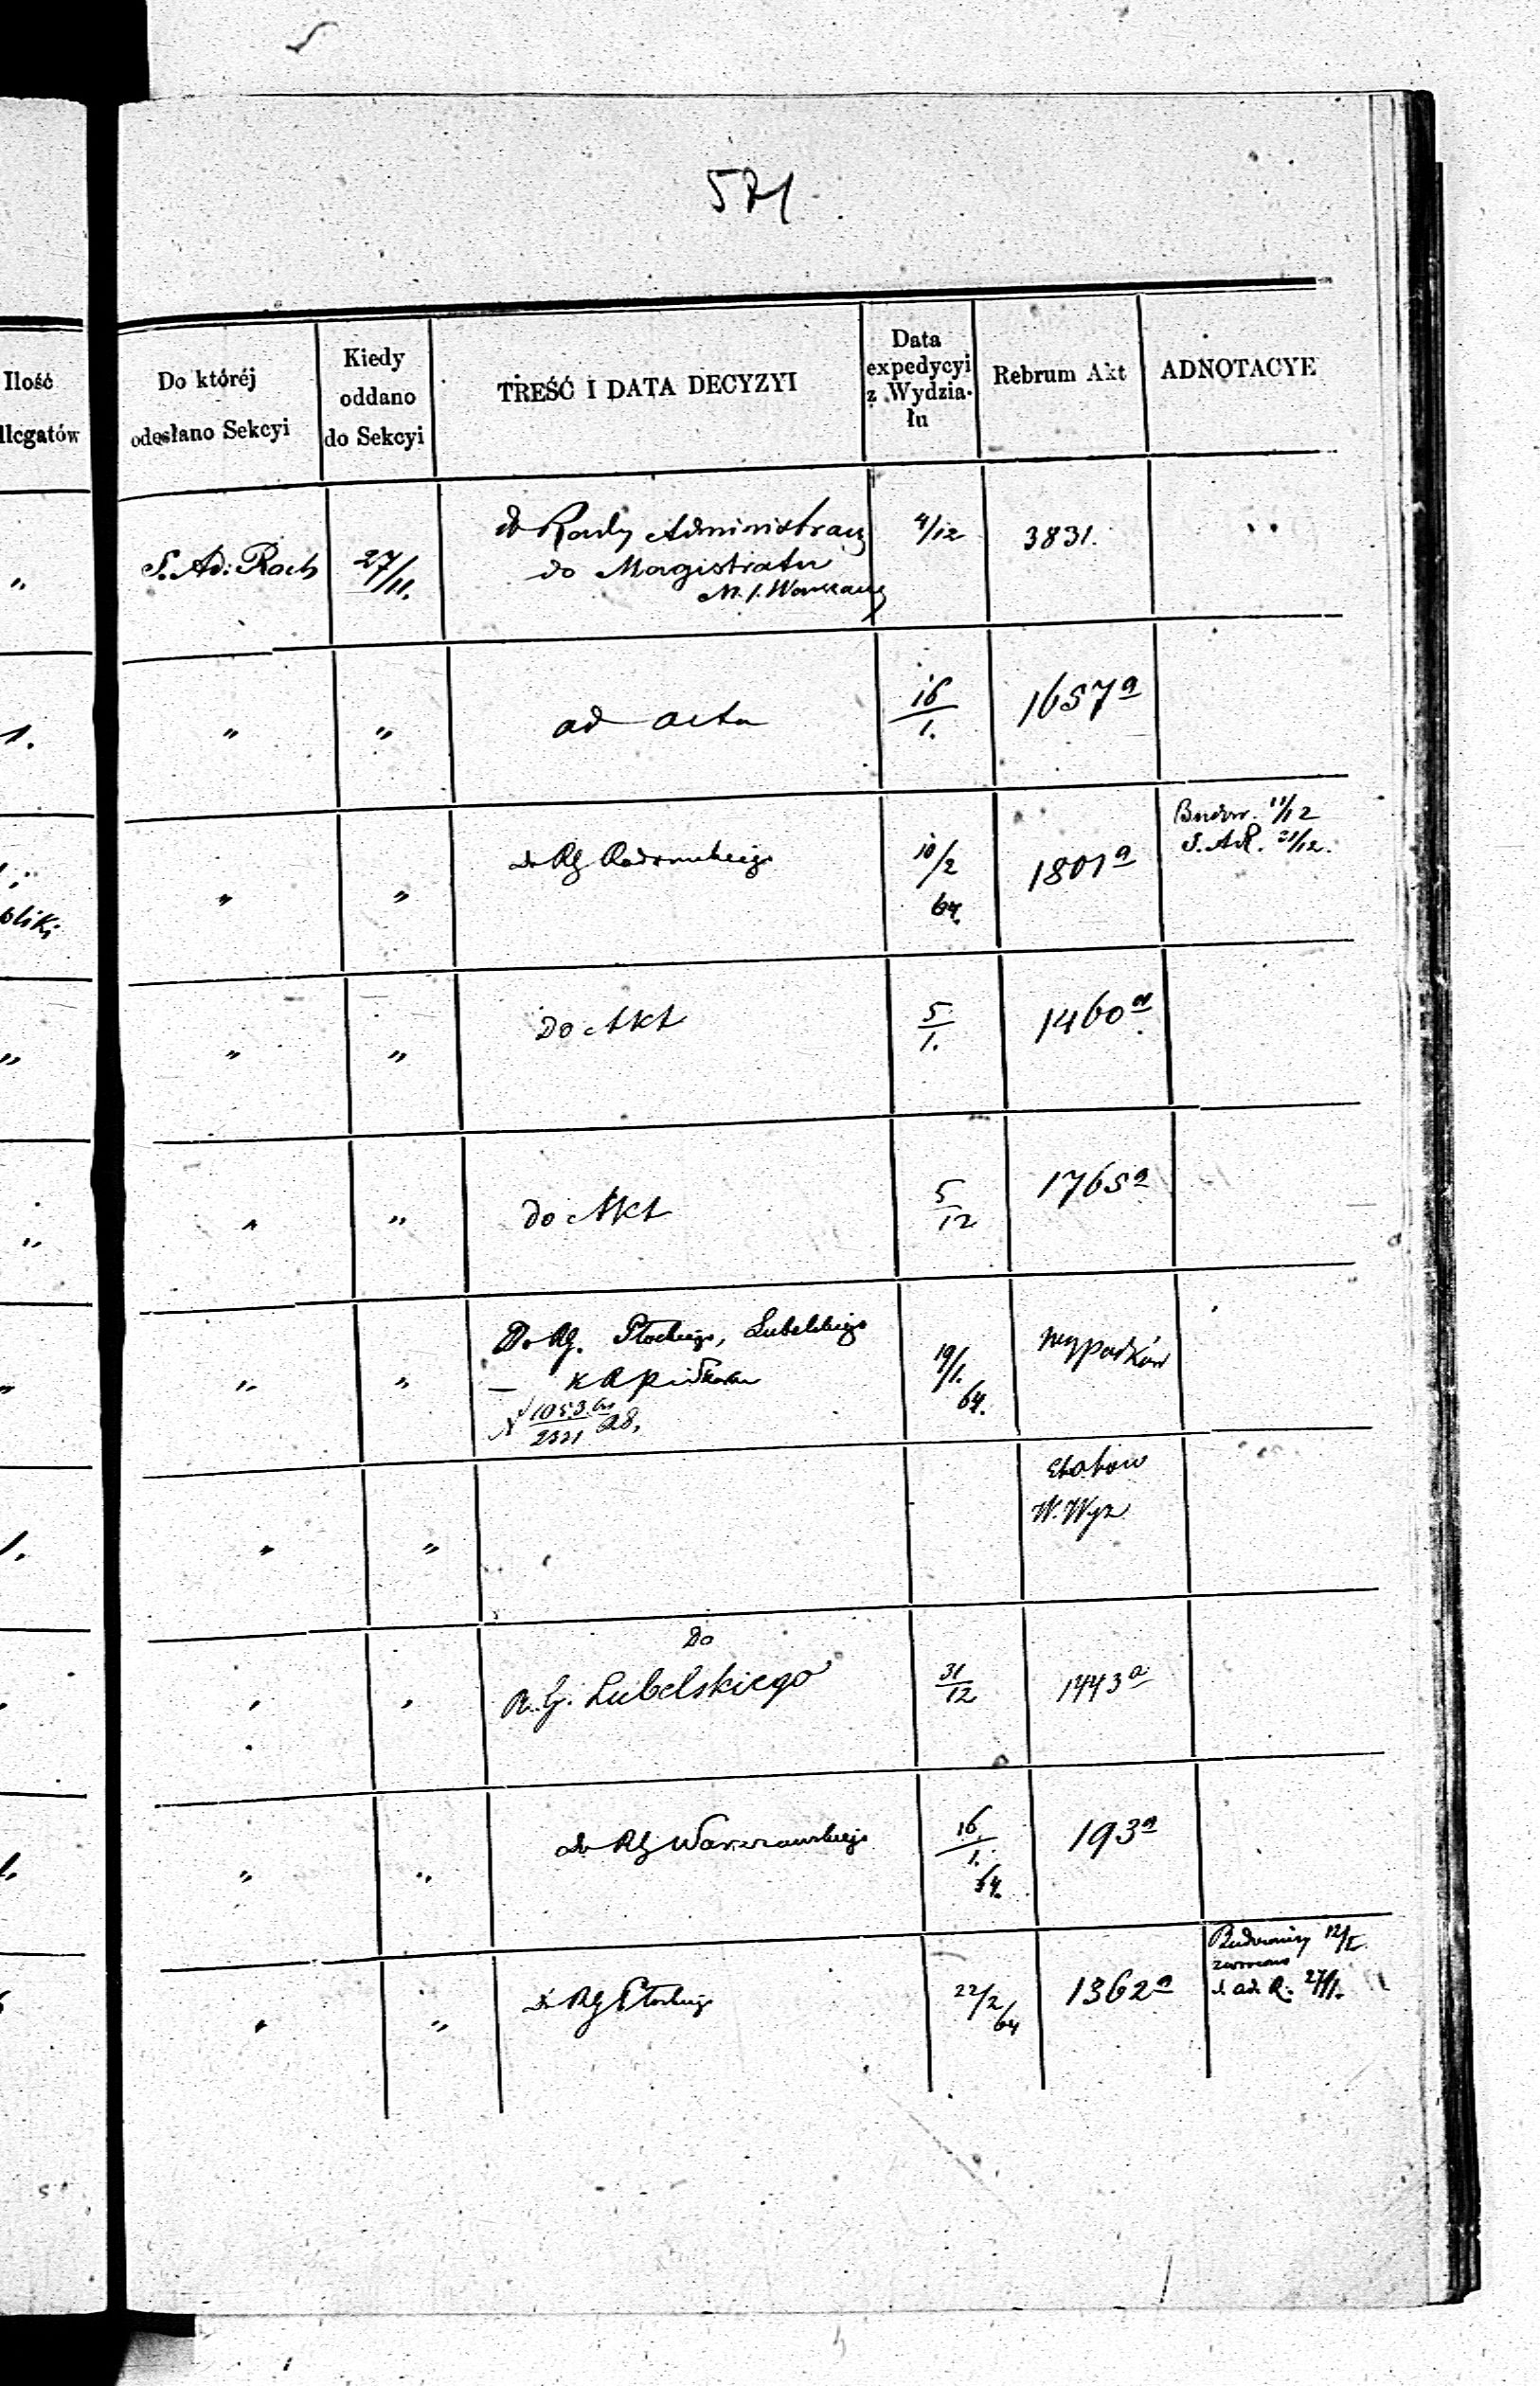 571
Ilość
llegatów
Do któréj
odesłano Sekcyi
Kiedy
oddano
do Sekcyi
TREŚĆ I DATA DECYZYI
Data
expedycyi
z Wydzia-
łu
Rebrum Akt
ADNOTACYE
"
S. Ad: Rach
27/11.
do Rady Administracy
do Magistratu
M. S. Warszawy
4/12
3831.
1.
"
"
ad acta
16/1.
1657a
"
"
do RG Radomskiego
10/2
64.
1801a
Budow. 11/12
S. AR. 21/12.
"
"
"
Do Akt
5/1.
1460a
"
"
"
Do Akt
5/12
1765a
"
"
"
Do RG. Płockiego, Lubelskiego
19/1.
64.
wypadków
1.
"
"
Etatów
W. Wyz
"
"
Do
R. G. Lubelskiego
31/12
1443a
"
"
do RG Warszawskiego
16/1.
64.
193a
"
"
do RG Płockiego
22/2
64
1362a
Budowniczy 12/I.
zwrócono
S. ad. R. 27/1.